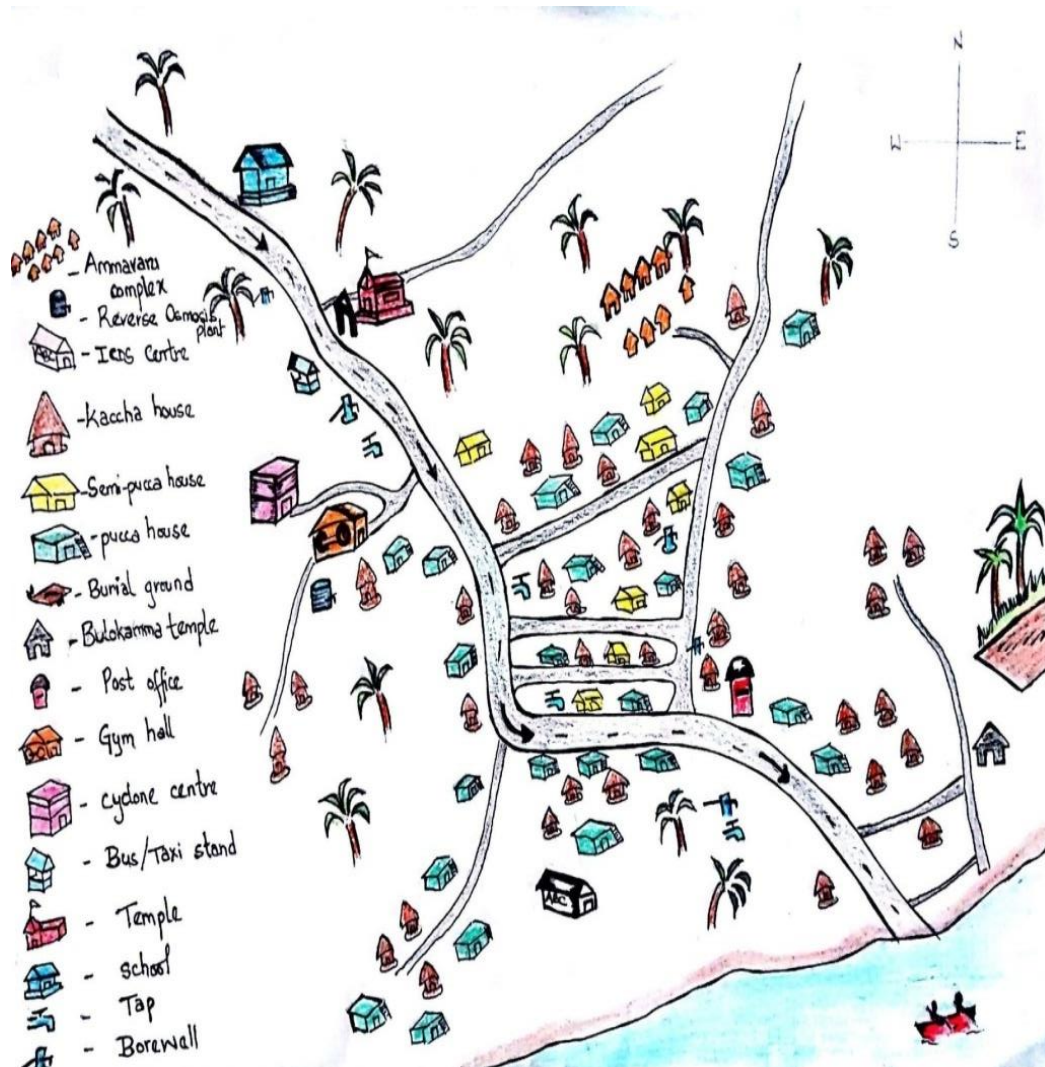 N
W E
S
- Ammavaru
complex
- Reverse Osmosis
plant
ABC - ICDS Centre
- Kaccha house
- Semi-pucca house
- pucca house
- Burial ground
- Bulokamma temple
- Post office
- Gym hall
- cyclone centre
- Bus/Taxi stand
- Temple
- school
- Tap
- Borewall
ABC